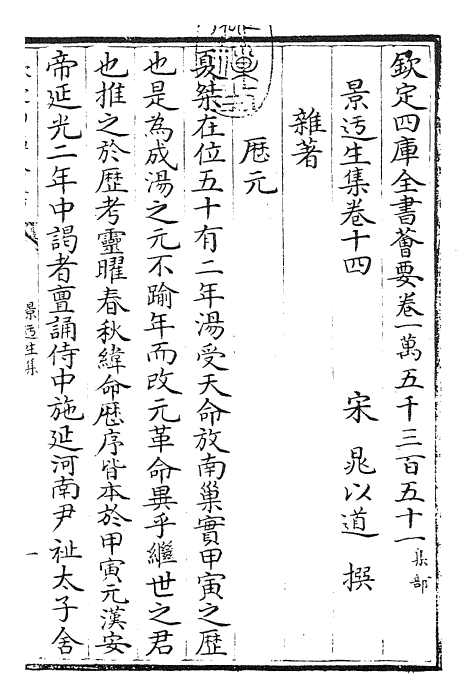 欽定四庫全書薈要卷一萬五千三百五十一集部
景迃生集卷十四
宋 晁以道 撰
雜著
厯元
夏桀在位五十有二年湯受天命放南巢實甲寅之歴
也是為成湯之元不踰年而改元革命異乎繼世之君
也推之於歷考靈曜春秋緯命厯序皆本於甲寅元漢安
帝延光二年中謁者亶誦侍中施延河南尹祉太子舍
景迃生集
一